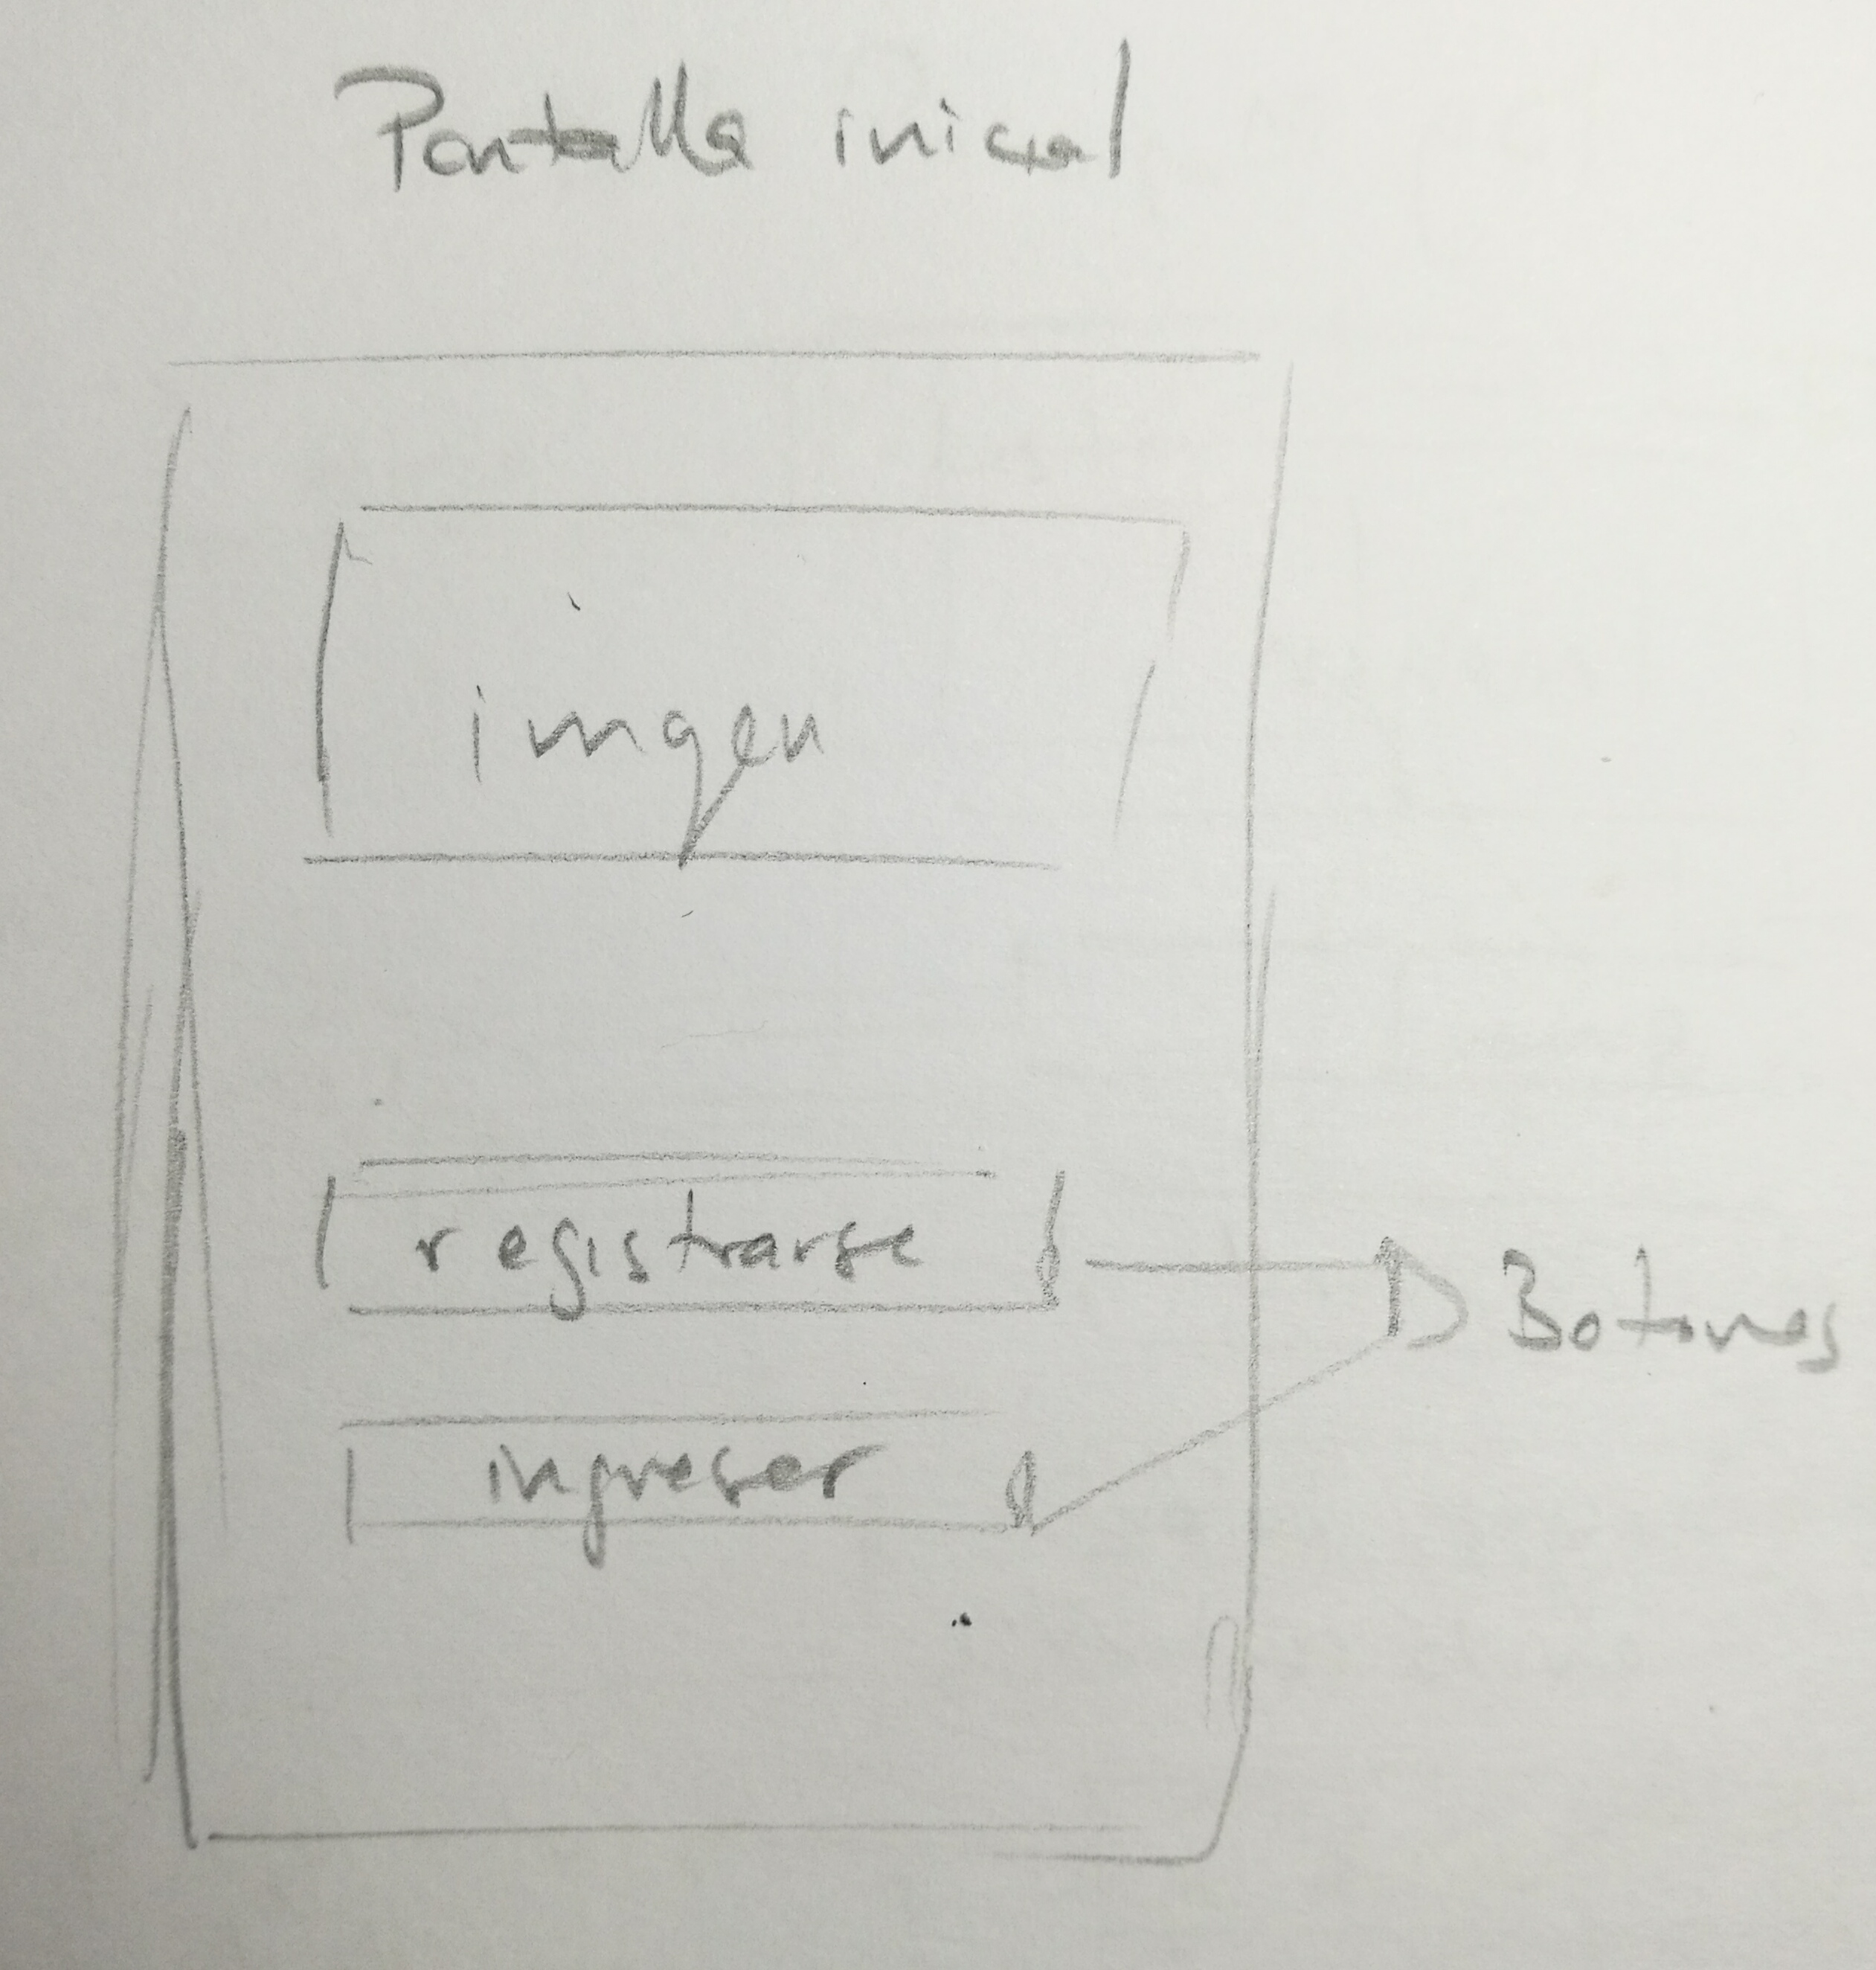 Pantalla inicial
imgen
registrarse
ingresar
Botones